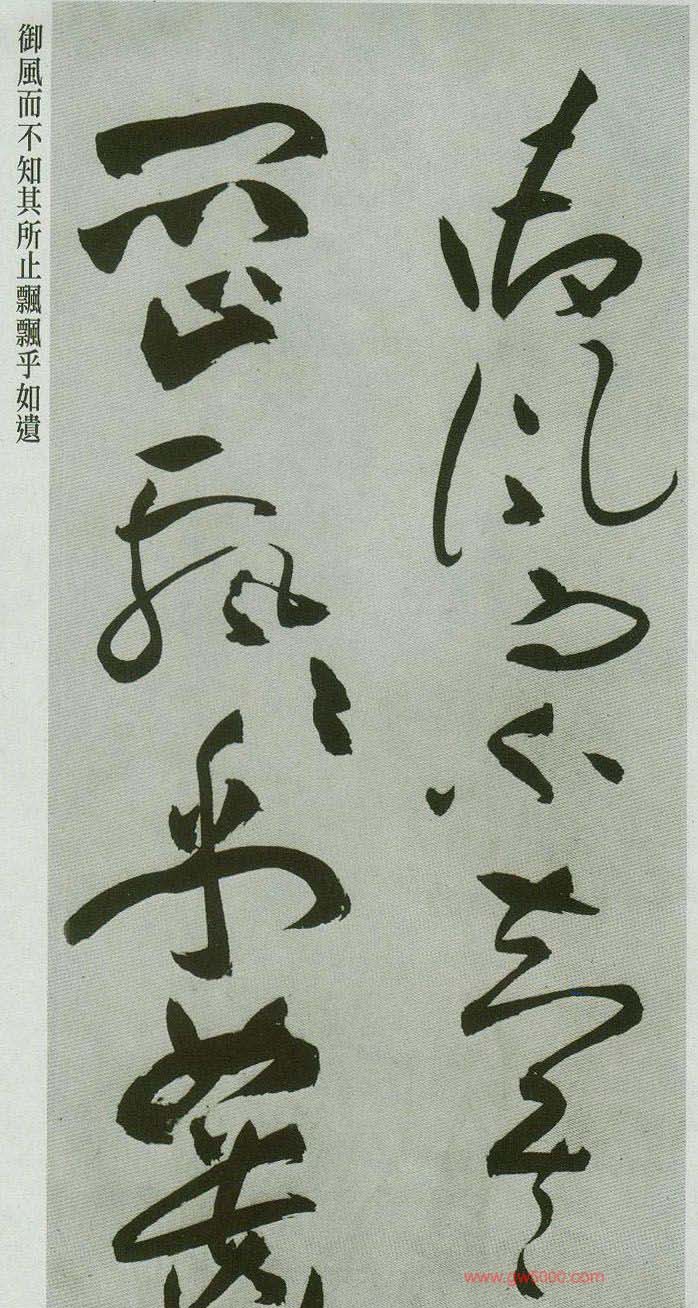 御風而不知其
所止飄〻乎如遺
御風而不知其所止飄飄乎如遺
www.gw5000.com